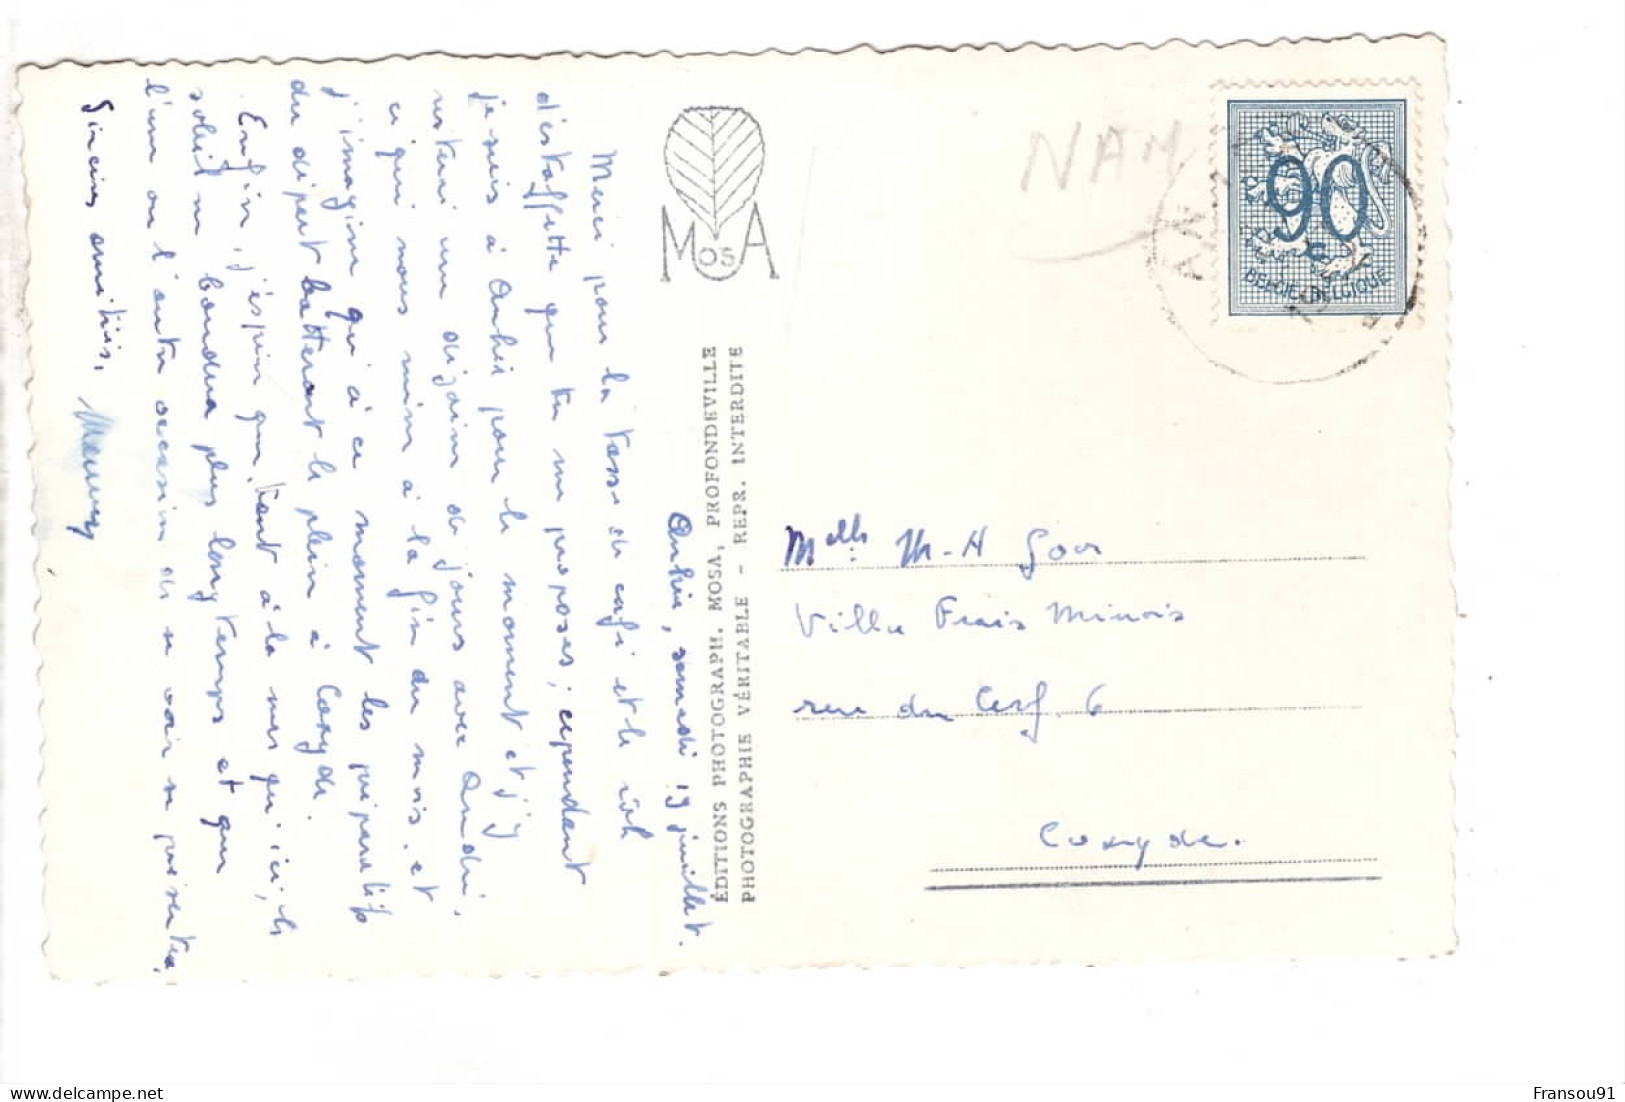 Anhée, samedi 19 juillet.
Merci pour la tasse de café et le rôle
d'estaffette que tu me proposes; cependant
je suis à Anhée pour le moment et j'y
retiens une dizaine de jours avec André,
ce qui nous mène à la fin du mois. et
j'imagine qu'à ce moment les préparatifs
du départ batteront le plein à Coxyde.
Enfin, j'espère que, tant à la mer qu'ici, le
soleil ne boudera plus longtemps et que
l'une ou l'autre occasion de se voir se présentera.
Sincères amitiés,
MOSA
ÉDITIONS PHOTOGRAPH. MOSA, PROFONDEVILLE
PHOTOGRAPHIE VÉRITABLE - REPR. INTERDITE
NAM
90
BELGIE-BELGIQUE
AN
Melle M-H Goor
Villa Frais Minois
rue du Cerf. 6
Coxyde.
Fransou91